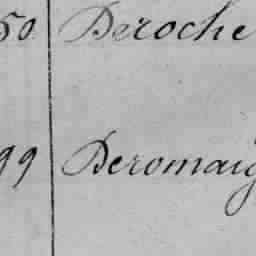 50 Deroche
99 Deromaig